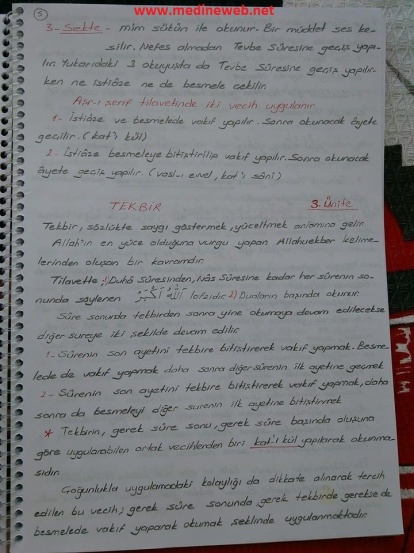 www.medineweb.net
5
3- Sekte - mim sükûn ile okunur. Bir müddet ses ke-
silir. Nefes almadan Tevbe Sûresine geçiş yapı-
lır. Yukarıdaki 3 okuyuşda da Tevbe Sûresine geçiş yapılır-
ken ne istiâze ne de besmele çekilir.
Aşr-ı şerif tilavetinde iki vecih uygulanır
1- İstiâze ve besmelede vakıf yapılır. Sonra okunacak âyete
geçilir. (kat'ı kül)
2- İstiâze besmeleye bitiştirilip vakıf yapılır. Sonra okunacak
âyete geçiş yapılır. (vasl-ı evvel, kat'ı sâni)
TEKBİR 3. Ünite
Tekbir, sözlükte saygı göstermek, yüceltmek anlamına gelir.
Allah'ın en yüce olduğuna vurgu yapan Allahuekber kelime-
lerinden oluşan bir kavramdır.
Tilavette; 1) Duhâ Sûresinden, Nâs Sûresine kadar her sûrenin so-
nunda söylenen اَللّٰهُ اَكْبَرْ lafzıdır. 2) Duaların başında okunur.
Sûre sonunda tekbirden sonra yine okumaya devam edilecekse
diğer sureye iki şekilde devam edilir.
1- Sûrenin son ayetini tekbire bitiştirerek vakıf yapmak. Besme-
lede de vakıf yapmak daha sonra diğer sûrenin ilk ayetine geçmek
2- Sûrenin son ayetini tekbire bitiştirerek vakıf yapmak, daha
sonra da besmeleyi diğer surenin ilk ayetine bitiştirmek
* Tekbirin, gerek sûre sonu, gerek sûre başında oluşuna
göre uygulanabilen ortak vecihlerden biri kat'ı kül yapılarak okunma-
sıdır.
Çoğunlukla uygulamadaki kolaylığı da dikkate alınarak tercih
edilen bu vecih; gerek sûre sonunda gerek tekbirde gerekse de
besmelede vakıf yaparak okumak şeklinde uygulanmaktadır.